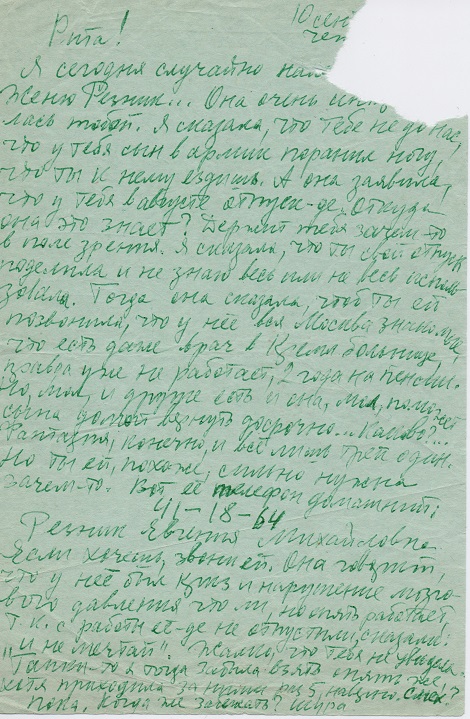 10 сен
Рита! чет
Я сегодня случайно на
Женю Резник... Она очень инт
лась тобой. Я сказала, что тебе не до нас,
что у тебя сын в армии поранил ногу,
что ты к нему ездишь. А она заявила,
что у тебя в августе отпуск-де. Откуда
она это знает? Держит тебя зачем-то
в поле зрения. Я сказала, что ты свой отпуск
поделила и не знаю весь или не весь исполь
зовала. Тогда она сказала, чтоб ты ей
позвонила, что у неё вся Москва знакомые,
что есть даже врач в Кремл. больнице,
правда уже не работает, 2 года на пенсии.
Но, мол, и другие есть и она, мол, поможет
сына домой вернуть досрочно... Каково?...
Фантазия, конечно, и всё лишь треп один.
Но ты ей, похоже, сильно нужна
зачем-то. Вот её телефон домашний:
41-18-64
Резник Евгения Михайловна
Если хочешь, звони ей. Она говорит,
что у неё был криз и нарушение мозго-
вого давления что ли, но опять работает,
т.к. с работы её-де не отпустили, сказали:
"и не мечтай". Жалко, что тебя не увидела.
я тогда забыла взять опять же,
хотя приходила за ними раз 5, наверно. Смех?
Пока. Когда же зайдешь? Шура